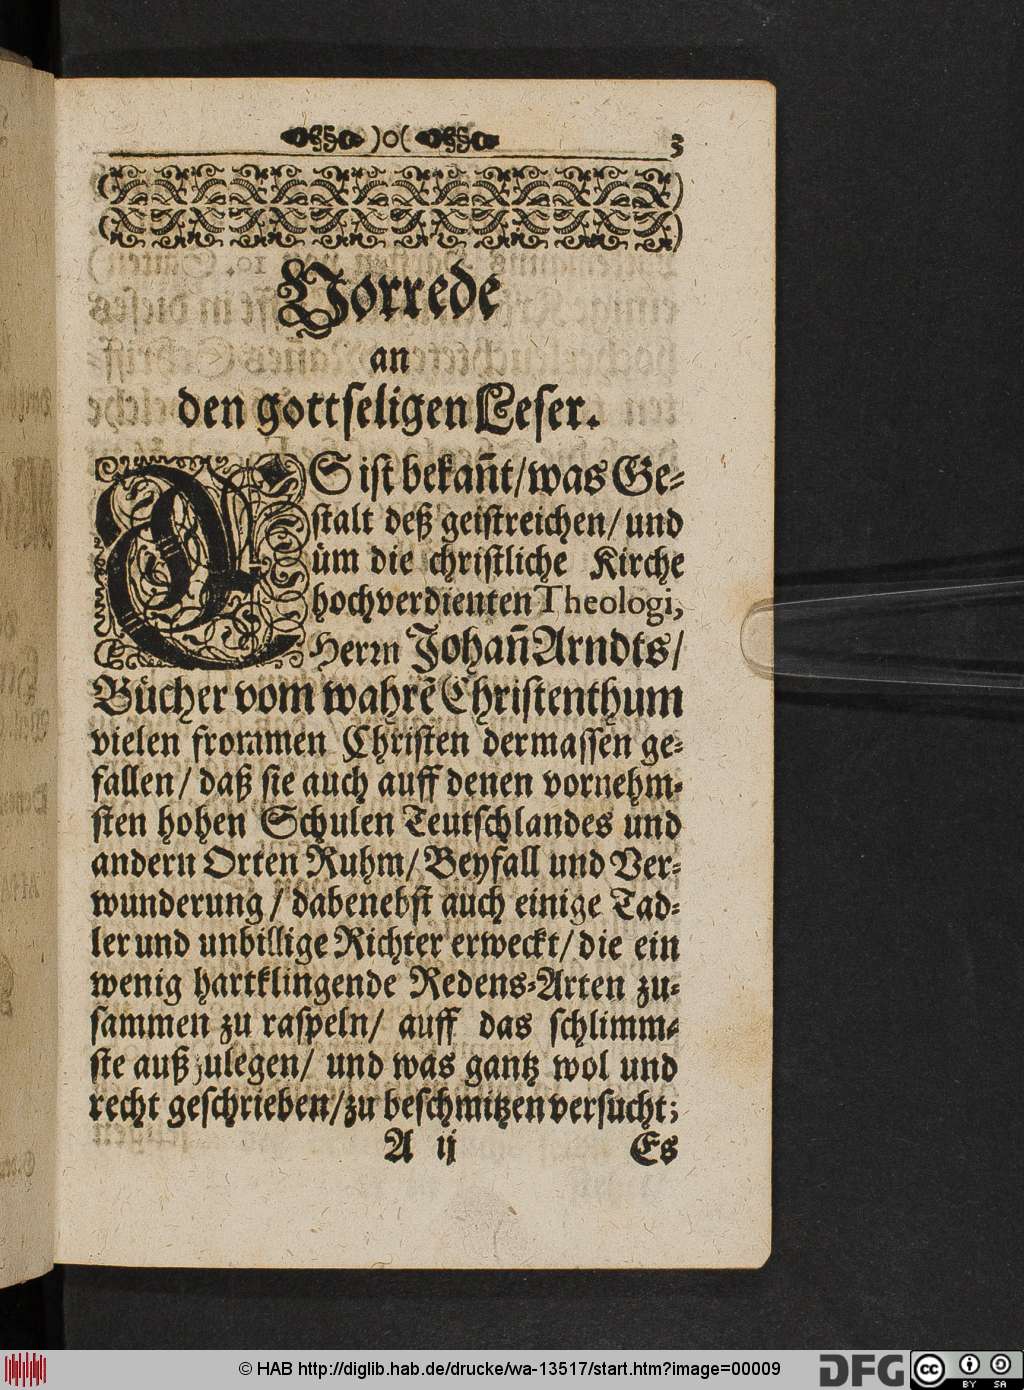 )o( 3
Vorrede
an
den gottseligen Leser.
ES ist bekañt/was Ge-
stalt deß geistreichen/und
üm die christliche Kirche
hochverdienten Theologi,
Herrn Johañ Arndts/
Bücher vom wahrẽ Christenthum
vielen frommen Christen dermassen ge-
fallen/ daß sie auch auff denen vornehm-
sten hohen Schulen Teutschlandes und
andern Orten Ruhm/ Beyfall und Ver-
wunderung/ dabenebst auch einige Tad-
ler und unbillige Richter erweckt/ die ein
wenig hartklingende Redens-Arten zu-
sammen zu raspeln/ auff das schlimm-
ste außzulegen/ und was gantz wol und
recht geschrieben/zu beschmitzen versucht;
A ij Es
© HAB http://diglib.hab.de/drucke/wa-13517/start.htm?image=00009
DFG cc BY SA